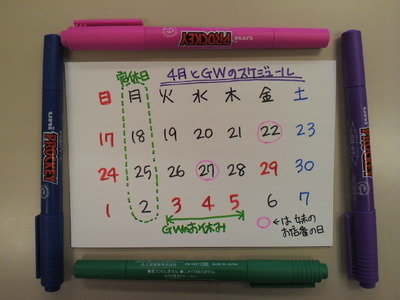 PROCKEY uni
定休日
4月とGWのスケジュール
日 月 火 水 木 金 土
17 18 19 20 21 22 23
24 25 26 27 28 29 30
1 2 3 4 5 6 7
GWのお休み
○は妹の
お店番の日
uni PROCKEY